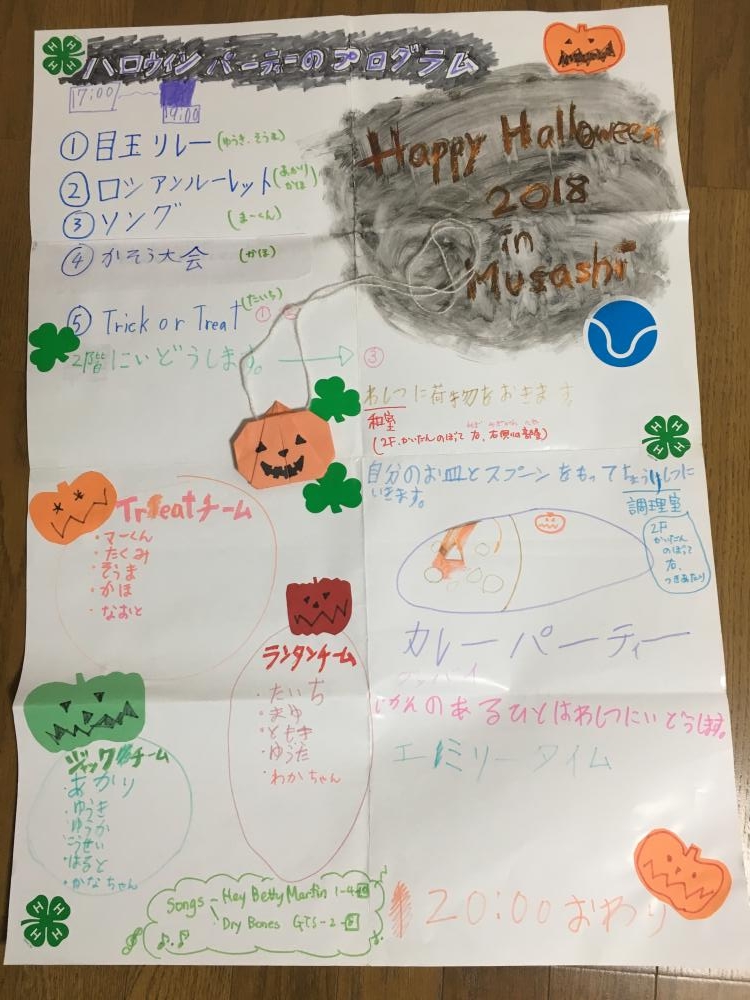 ハロウィンパーティーのプログラム
17:00
19:00
①目玉リレー(ゆうき、そうま)
②ロシアンルーレット(あかり かほ)
③ソング (まーくん)
④かそう大会 (かほ)
⑤Trick or Treat (たいち) ①
2階にいどうします。 ③
Happy Halloween
2018
in
Musashi
わしつに荷物をおきます
和室
(2F、かいだんのぼって右、右側の部屋)
自分のお皿とスプーンをもってちょうりしつに
いきます。
調理室
2F
かいだん
のぼって
右、
つきあたり
カレーパーティー
じかんのあるひとはわしつにいどうします。
エミリータイム
20:00おわり
Treatチーム
・マーくん
・たくみ
・そうま
・かほ
・なおと
ランタンチーム
・たいち
・まゆ
・ともき
・ゆうた
・わかちゃん
ジャックチーム
・あかり
・ゆうき
・ゆうか
・こうせい
・はると
・かなちゃん
Songs - Hey Betty Martin 1-4
Dry Bones GTS-2-
H H H H
H H H H
H H H H